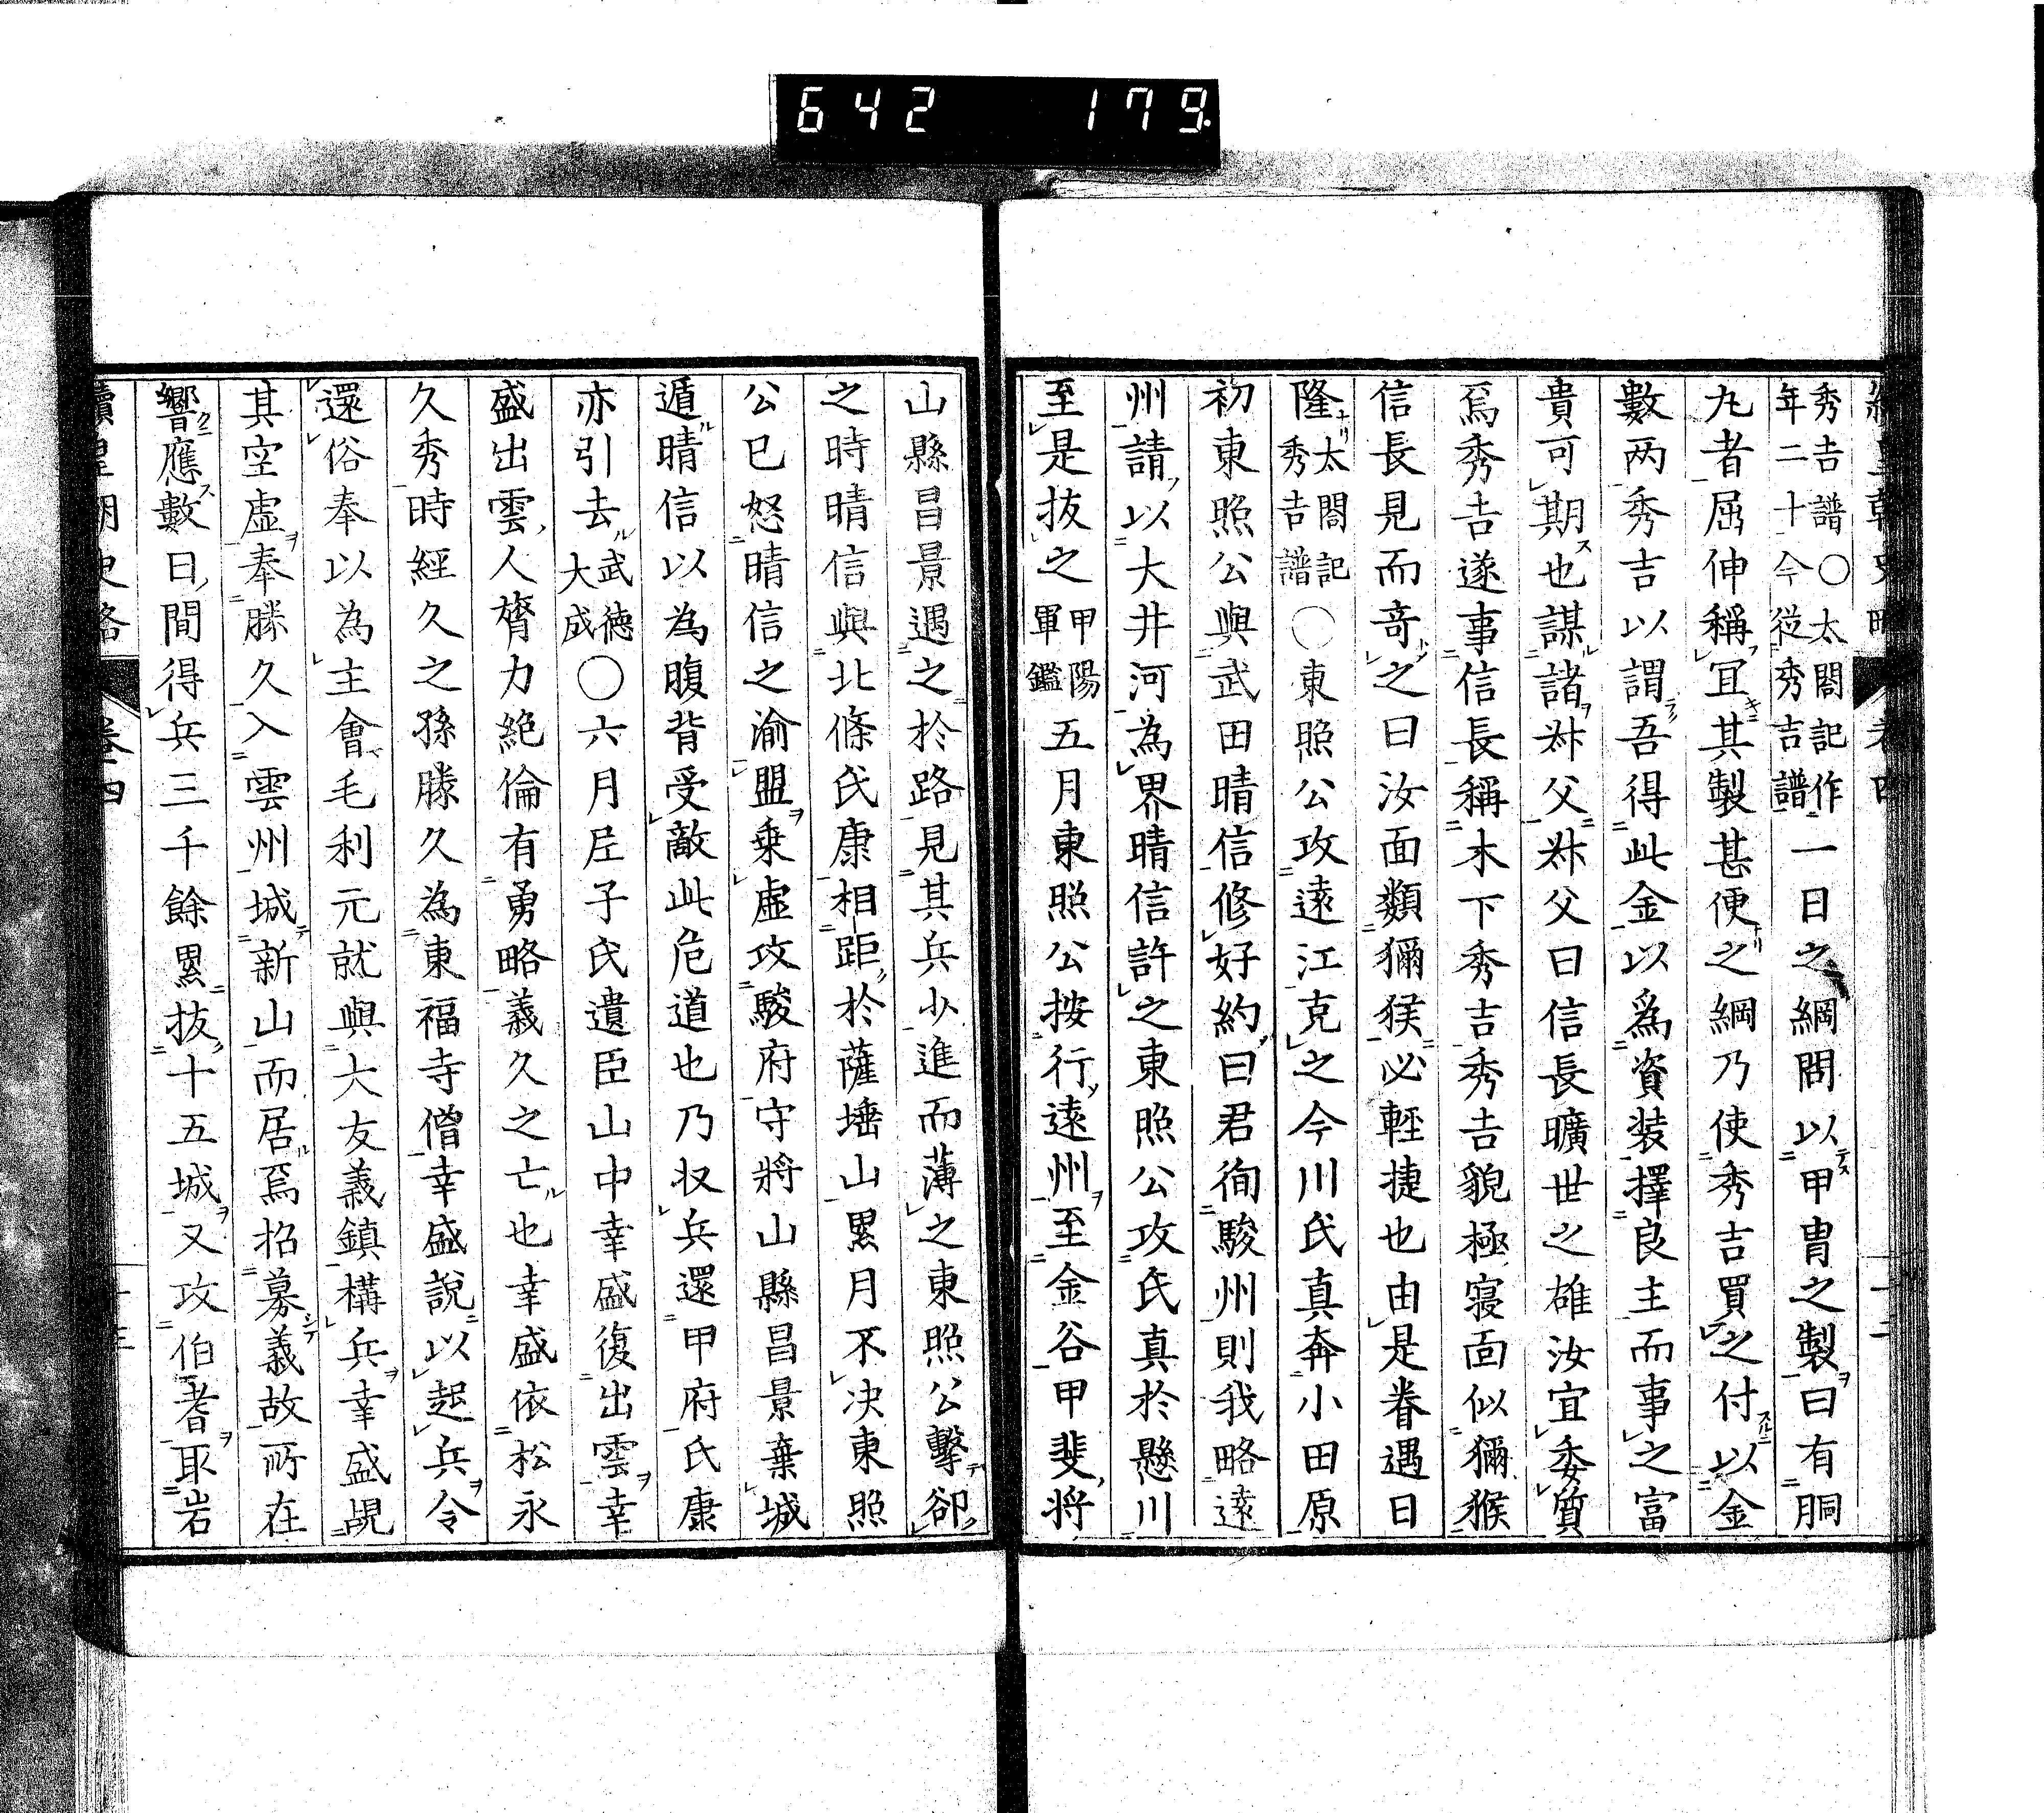 642 179
秀吉譜〇太閤記作
年二十今從秀吉譜
一日之綱問以甲冑之製曰有胴
丸者屈伸稱宜其製甚便之綱乃使秀吉買之付以金
數两秀吉以謂吾得此金以爲資装擇良主而事之富
貴可期也謀諸叔父叔父曰信長曠世之雄汝宜委質
焉秀吉遂事信長稱木下秀吉秀吉貌極寝面似獼猴
信長見而奇之曰汝面類獼猴必輕捷也由是眷遇日
隆太閤記秀吉譜〇東照公攻遠江克之今川氏真奔小田原
初東照公與武田晴信修好約曰君徇駿州則我略遠
州請以大井河為界晴信許之東照公攻氏真於懸川
至是抜之甲陽軍鑑五月東照公按行遠州至金谷甲斐將
山縣昌景遇之於路見其兵少進而薄之東照公擊卻
之時晴信與北條氏康相距於薩埵山累月不决東照
公已怒晴信之渝盟乗虛攻駿府守將山縣昌景棄城
遁晴信以為腹背受敵此危道也乃収兵還甲府氏康
亦引去武德大成〇六月尼子氏遺臣山中幸盛復出雲幸
盛出雲人膂力絶倫有勇略義久之亡也幸盛依松永
久秀時經久之孫勝久為東福寺僧幸盛說以起兵令
還俗奉以為主會毛利元就與大友義鎮構兵幸盛覘
其空虛奉勝久入雲州城新山而居焉招募義故所在
響應數日間得兵三千餘累抜十五城又攻伯耆取岩
續皇朝史略 卷四